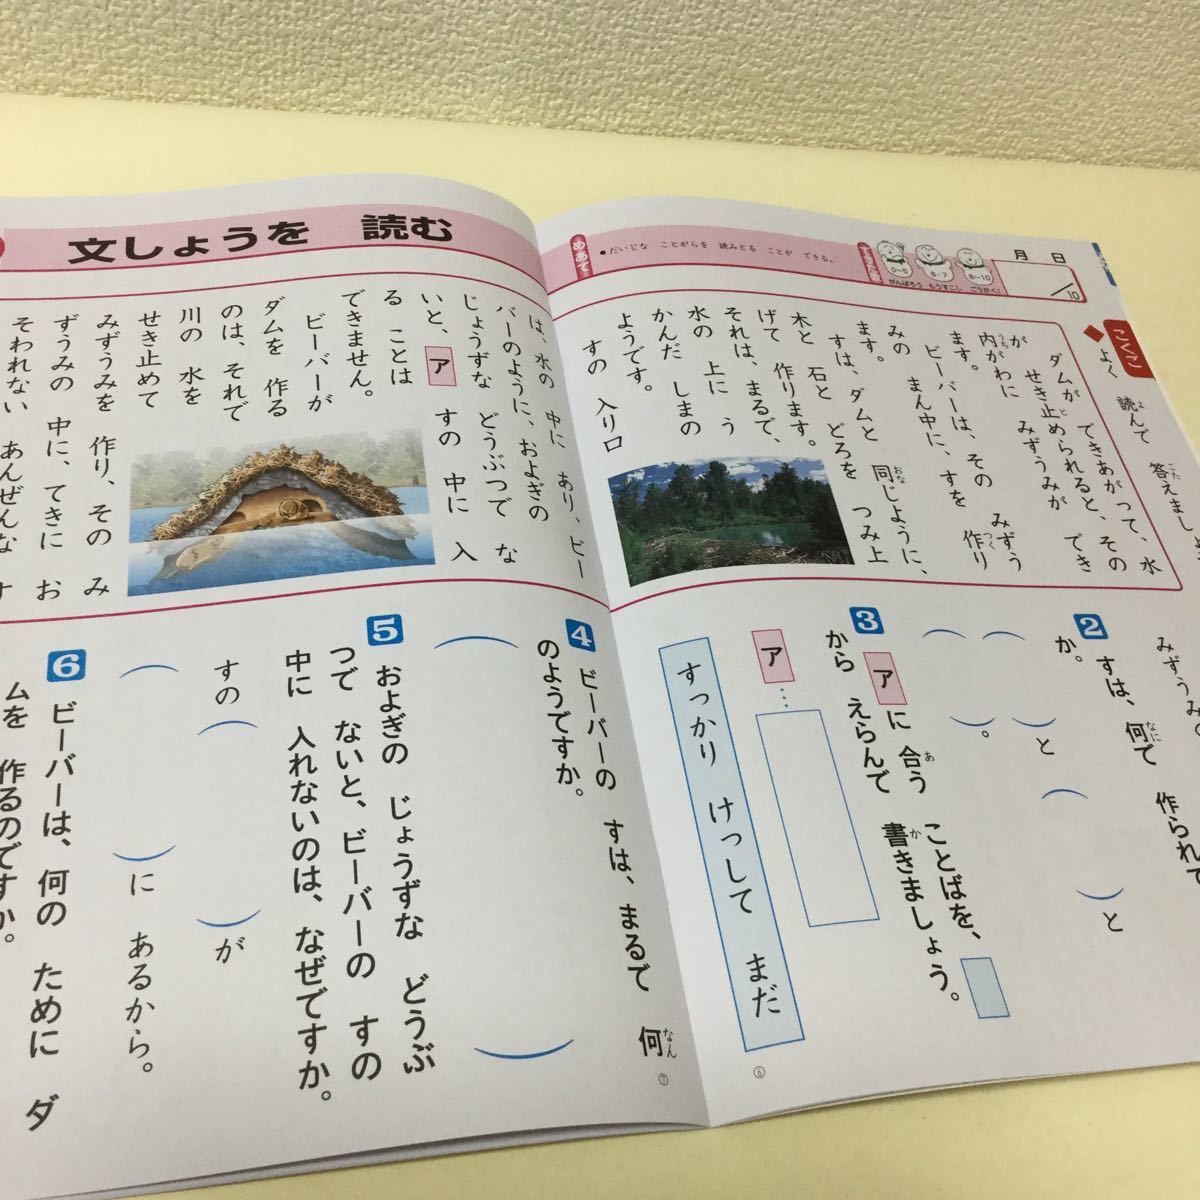 文しょうを 読む
めあて
●だいじな ことがらを 読みとる ことが できる。
できた数
0~5
6~7
8~10
がんばろう
もうすこし
ごうかく!
月 日
/10
こくご
◆よく 読んで 答えましょ
ダムが できあがって、水
が せき止められると、その
内がわに みずうみが でき
ます。
ビーバーは、その みずう
みの まん中に、すを 作り
ます。
すは、ダムと 同じように、
木と 石と どろを つみ上
げて 作ります。
それは、まるで、
水の 上に う
かんだ しまの
ようです。
すの 入り口
は、水の 中に あり、ビー
バーのように、およぎの
じょうずな どうぶつで な
いと、 ア すの 中に 入
る ことは
できません。
ビーバーが
ダムを 作る
のは、それで
川の 水を
せき止めて
みずうみを 作り、その み
ずうみの 中に、てきに お
そわれない あんぜんな す
みずうみ
2 すは、何で 作られて
か。
( )と
( )と
( )。
3 ア に 合う ことばを、
から えらんで 書きましょう。
ア…
すっかり けっして まだ
4 ビーバーの すは、まるで 何
のようですか。
( )
5 およぎの じょうずな どうぶ
つで ないと、ビーバーの すの
中に 入れないのは、なぜですか。
すの( )が
( )に あるから。
6 ビーバーは、何の ために ダ
ムを 作るのですか。
⑥
⑦